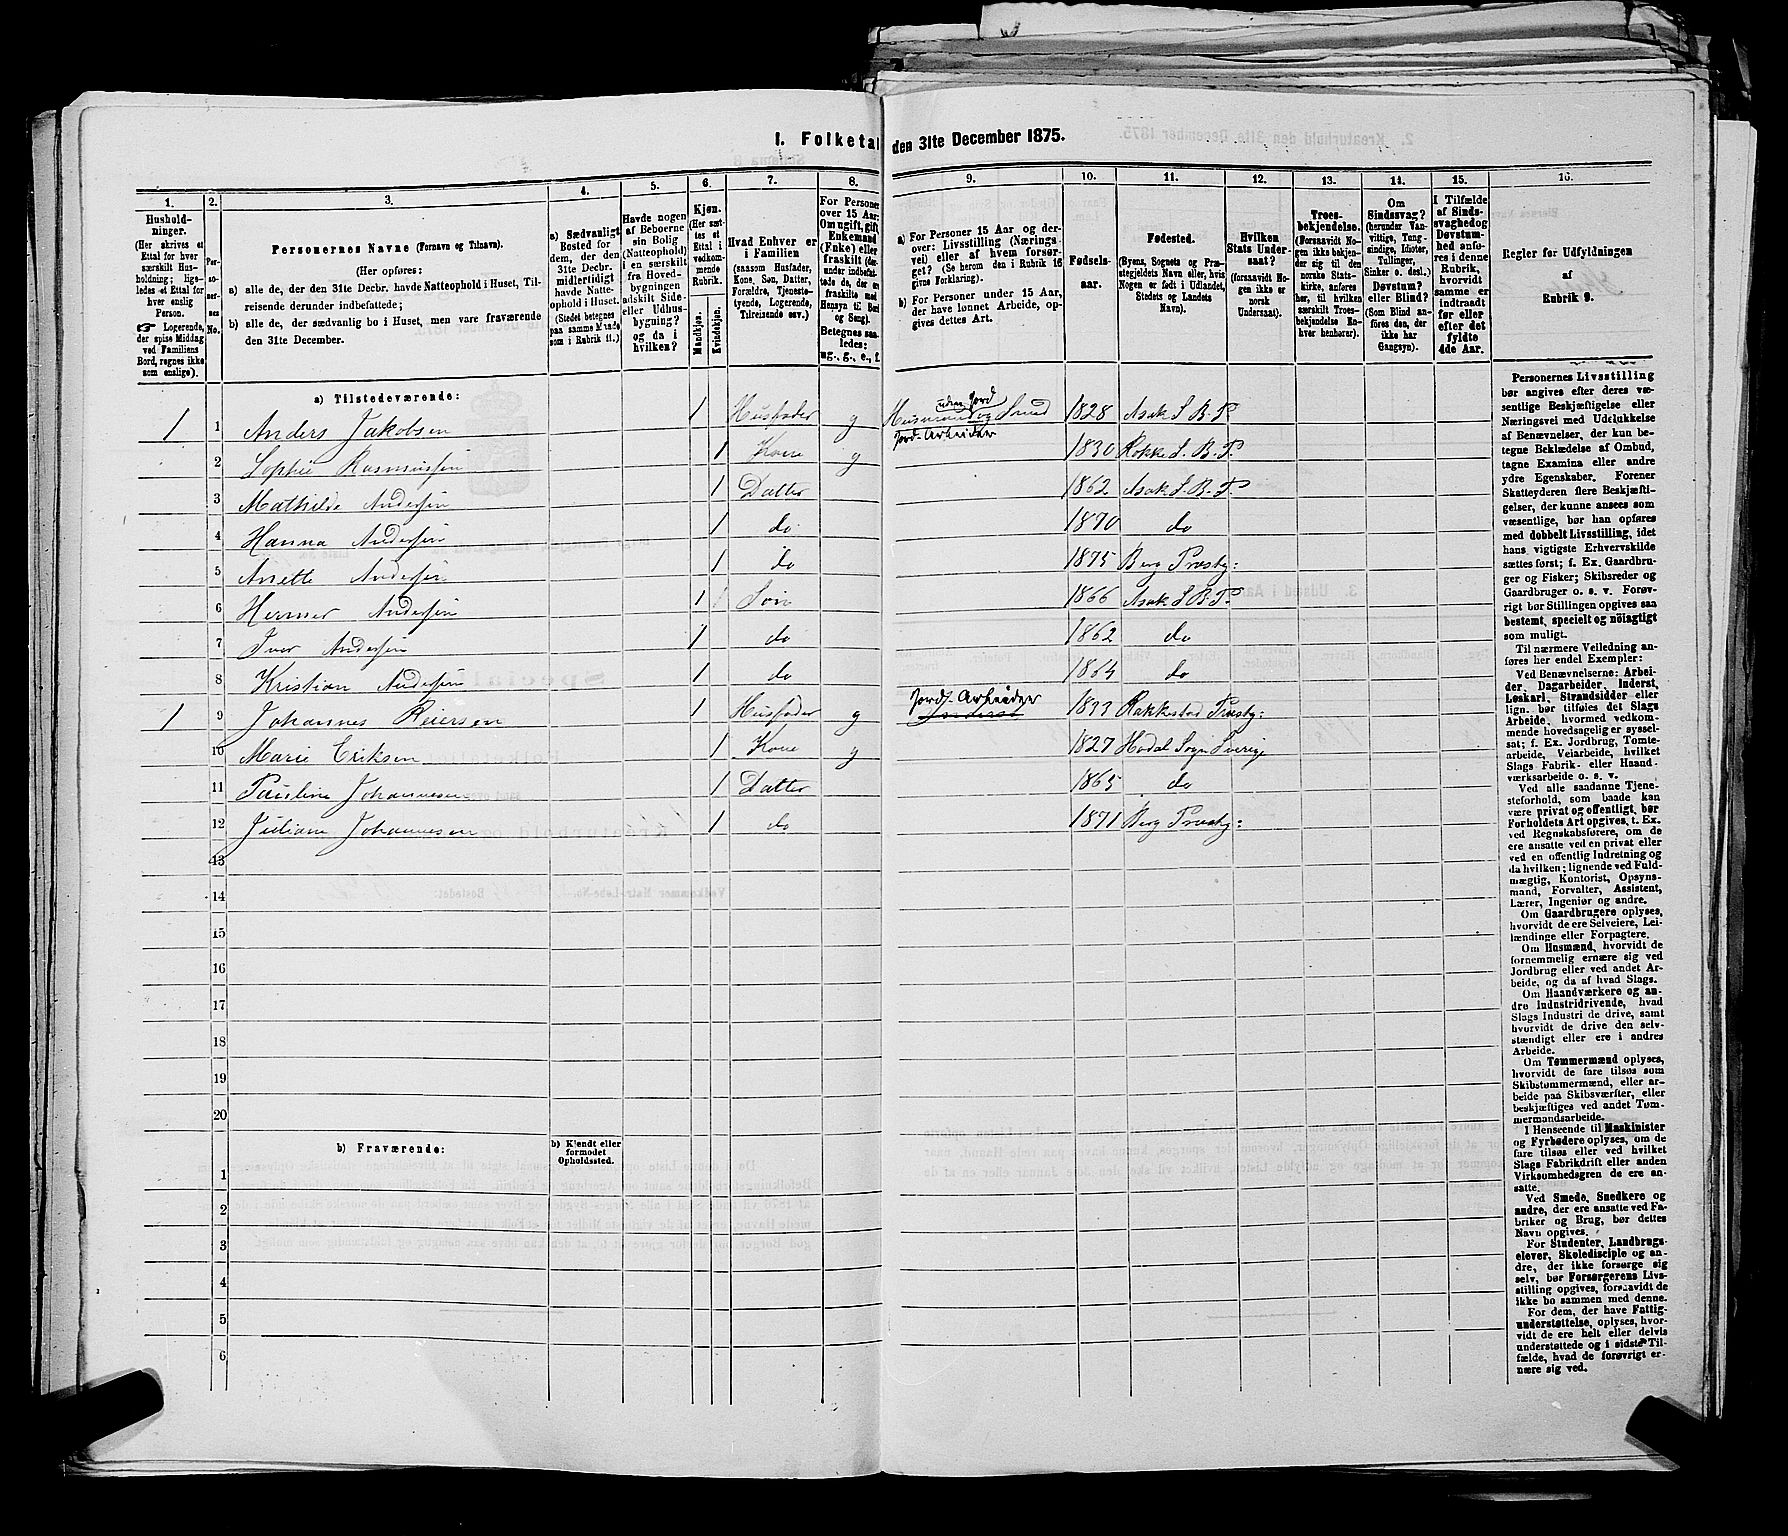 I. Folketal den 31te December 1875.
1. 2. 3. 4. 5. 6. 7. 8. 9. 10. 11. 12. 13. 14. 15. 16.
Hushold-
ninger.
(Her skrives et
Ettal for hver
særskilt Hus-
holdning; lige-
ledes et Ettal for
hver enslig
Person.
☞ Logerende,
der spise Middag
ved Familiens
Bord, regnes ikke
som enslige).
Per-
so-
ner-
nes
No.
Personernes Navne (Fornavn og Tilnavn).
(Her opføres:
a) alle de, der den 31te Decbr. havde Natteophold i Huset, Til-
reisende derunder indbefattede;
b) alle de, der sædvanlig bo i Huset, men vare fraværende
den 31te December.
a) Sædvanligt
Bosted for
dem, der den
31te Decbr.
midlertidigt
havde Natte-
ophold i Huset.
(Stedet betegnes
paa samme Maade
som i Rubrik 11.)
Havde nogen
af Beboerne
sin Bolig
(Natteophold)
i en særskilt
fra Hoved-
bygningen
adskilt Side-
eller Udhus-
bygning?
og da i
hvilken?
Kjøn.
(Her sæt-
tes et
Ettal i
vedkom-
mende
Rubrik.
Mandkjøn.
Kvindekjøn.
Hvad Enhver er
i Familien
(saasom Husfader,
Kone, Søn, Datter,
Forældre, Tjeneste-
tyende, Logerende,
Tilreisende osv.)
For Personer
over 15 Aar:
Om ugift, gift,
Enkemand
(Enke) eller
fraskilt (der-
under indbefat-
tede de, der ere
fraskilte med
Hensyn til Bord
og Seng).
Betegnes saa-
ledes:
ug., g., e., f.
a) For Personer 15 Aar og der-
over: Livsstilling (Nærings-
vei) eller af hvem forsør-
get? (Se herom den i Rubrik 16
givne Forklaring).
b) For Personer under 15 Aar,
der have lønnet Arbeide, op-
gives dettes Art.
Fødsels-
aar.
Fødested.
(Byens, Sognets og Præ-
stegjeldets Navn eller, hvis
Nogen er født i Udlandet,
Stedets og Landets
Navn).
Hvilken
Stats Under-
saat?
(forsaavidt No-
gen ikke er
norsk
Undersaat).
Troes-
bekjendelse.
(Forsaavidt No-
gen ikke bekjen-
der sig til den
norske Stats-
kirke, anføres
her, til hvilken
særskilt Troes-
bekjendelse En-
hver henhører).
Om
Sindssvag?
(herunder Van-
vittige, Tung-
sindige, Idioter,
Tullinger,
Sinker o. desl.)
Døvstum?
eller Blind?
(Som Blind an-
føres den, der
ikke har
Gangsyn).
I Tilfælde
af Sinds-
svaghed og
Døvstum-
hed anfø-
res i denne
Rubrik,
hvorvidt
samme er
indtraadt
før eller
efter det
fyldte
4de Aar.
Regler for Udfyldningen
af
Rubrik 9.
a) Tilstedeværende:
1 1 Anders Jakobsen 1 Husfader g Husmand uden Jord og Smed Jord-Arbeider 1828 Asak S. B. P.
2 Sophie Rasmussen 1 Kone g 1830 Rokke S. B. P.
3 Mathilde Andersen 1 Datter 1862 Asak S. B. P.
4 Hanna Andersen 1 do 1870 do
5 Anette Andersen 1 do 1875 Berg Præstg:
6 Hermer Andersen 1 Søn 1866 Asak S. B. P.
7 Iver Andersen 1 do 1862 do
8 Kristian Andersen 1 do 1864 do
1 9 Johannes Reiersen 1 Husfader g Jord-Arbeider 1833 Rakkestad Præstg:
10 Marie Eriksen 1 Kone g 1827 Hodal Sogn Sverige
11 Pauline Johannesen 1 Datter 1865 do
12 Juliane Johannesen 1 do 1871 Berg Præstg:
13
14
15
16
17
18
19
20
b) Fraværende:
b) Kjendt eller
formodet
Opholdssted.
1
2
3
4
5
6
Personernes Livsstilling
bør angives efter deres væ-
sentlige Beskjæftigelse eller
Næringsvei med Udelukkelse
af Benævnelser, der kun be-
tegne Beklædelse af Ombud,
tagne Examina eller andre
ydre Egenskaber. Forener
Skatteyderen flere Beskjæfti-
gelser, der kunne ansees som
væsentlige, bør han opføres
med dobbelt Livsstilling, idet
hans vigtigste Erhvervskilde
sættes først; f. Ex. Gaardbru-
ger og Fisker; Skibsreder og
Gaardbruger o. s. v. Forøv-
rigt bør Stillingen opgives saa
bestemt, specielt og nøiagtigt
som muligt.
Til nærmere Veiledning an-
føres her endel Exempler:
Ved Benævnelserne: Arbei-
der, Dagarbeider, Inderst,
Løskarl, Strandsidder eller
lign. bør tilføies det Slags
Arbeide, hvormed vedkom-
mende hovedsagelig er syssel-
sat; f. Ex. Jordbrug, Tomte-
arbeide, Veiarbeide, hvilket
Slags Fabrik- eller Haand-
værksarbeide o. s. v.
Ved alle saadanne Tjene-
steforhold, som baade kan
være privat og offentligt, bør
Forholdets Art opgives, t. Ex.
ved Regnskabsførere, om de
ere ansatte ved en privat eller
ved en offentlig Indretning og
da hvilken; lignende ved Fuld-
mægtig, Kontorist, Opsyns-
mand, Forvalter, Assistent,
Lærer, Ingeniør og andre.
Om Gaardbrugere oplyses,
hvorvidt de ere Selveiere, Lei-
lændinge eller Forpagtere.
Om Husmænd, hvorvidt de
fornemmelig ernære sig ved
Jordbrug eller ved andet Ar-
beide, og da af hvad Slags.
Om Haandværkere og an-
dre Industridrivende, hvad
Slags Industri de drive, samt
hvorvidt de drive den selv-
stændigt eller ere i andres
Arbeide.
Om Tømmermænd oplyses,
hvorvidt de fare tilsøs som
Skibstømmermænd, eller ar-
beide paa Skibsværfter, eller
beskjæftiges ved andet Tøm-
mermandsarbeide.
I Henseende til Maskinister
og Fyrbødere oplyses, om de
fare tilsøs eller ved hvilket
Slags Fabrikdrift eller anden
Virksomhedsgren de ere an-
satte.
Ved Smede, Snedkere og
andre, der ere ansatte ved Fa-
briker og Brug, bør dettes
Navn opgives.
For Studenter, Landbrugs-
elever, Skoledisciple og an-
dre, der ikke forsørge sig
selv, bør Forsørgerens Livs-
stilling opgives, forsaavidt de
ikke bo sammen med denne.
For dem, der have Fattig-
understøttelse, oplyses, hvor-
vidt de ere helt eller delvis
understøttede og i sidste Til-
fælde, hvad de forøvrigt er-
nære sig ved.